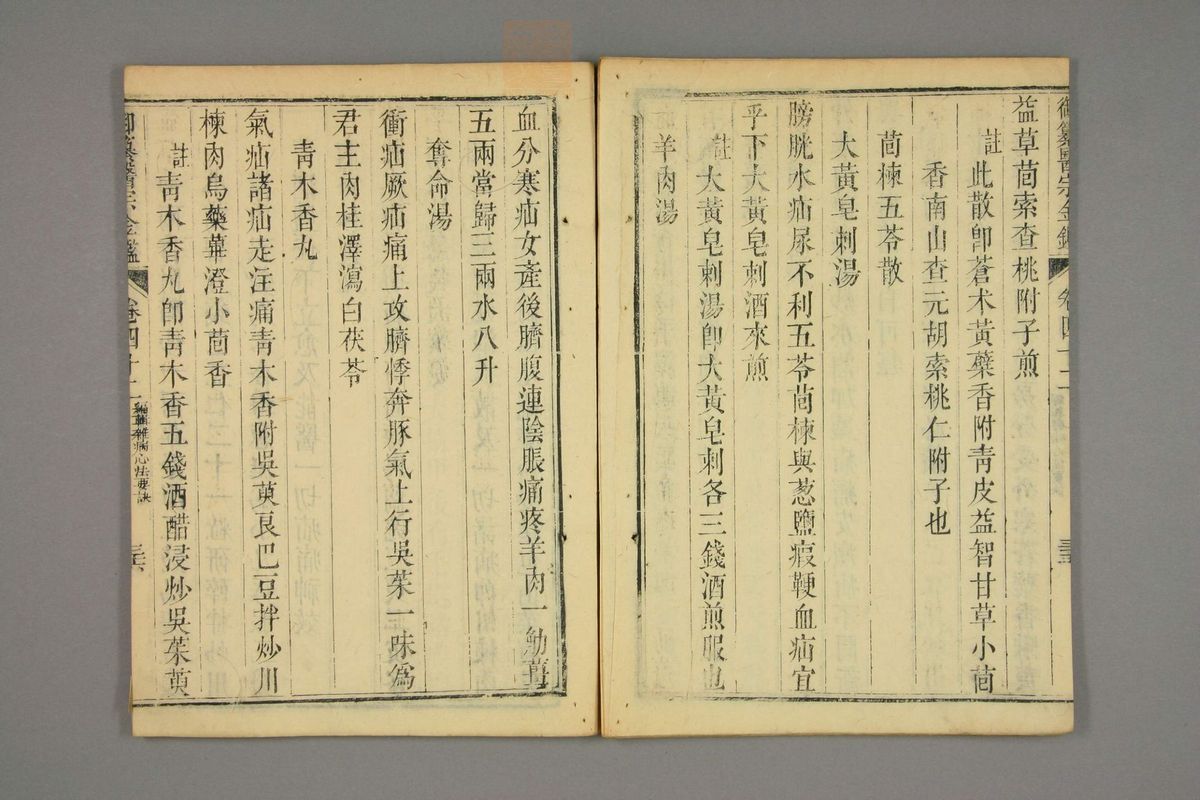 御纂醫宗金鑑 卷四十二 三五
益草茴索查桃附子煎
註 此散卽蒼术黃蘗香附靑皮益智甘草小茴
香南山查元胡索桃仁附子也
茴楝五苓散
大黃皂刺湯
膀胱水疝尿不利五苓茴楝與葱鹽瘕鞕血疝宜
乎下大黃皂刺酒來煎
註 大黃皂刺湯卽大黃皂刺各三錢酒煎服也
羊肉湯
血分寒疝女產後臍腹連陰脹痛疼羊肉一觔薑
五兩當歸三兩水八升
奪命湯
衝疝厥疝痛上攻臍悸奔豚氣上行吳茱一味爲
君主肉桂澤瀉白茯苓
青木香丸
氣疝諸疝走注痛青木香附吳萸良巴豆拌炒川
楝肉烏藥蓽澄小茴香
註 靑木香丸卽靑木香五錢酒醋浸炒吳茱萸
御纂醫宗金鑑 卷四十二 編輯雜病心法要訣 三六